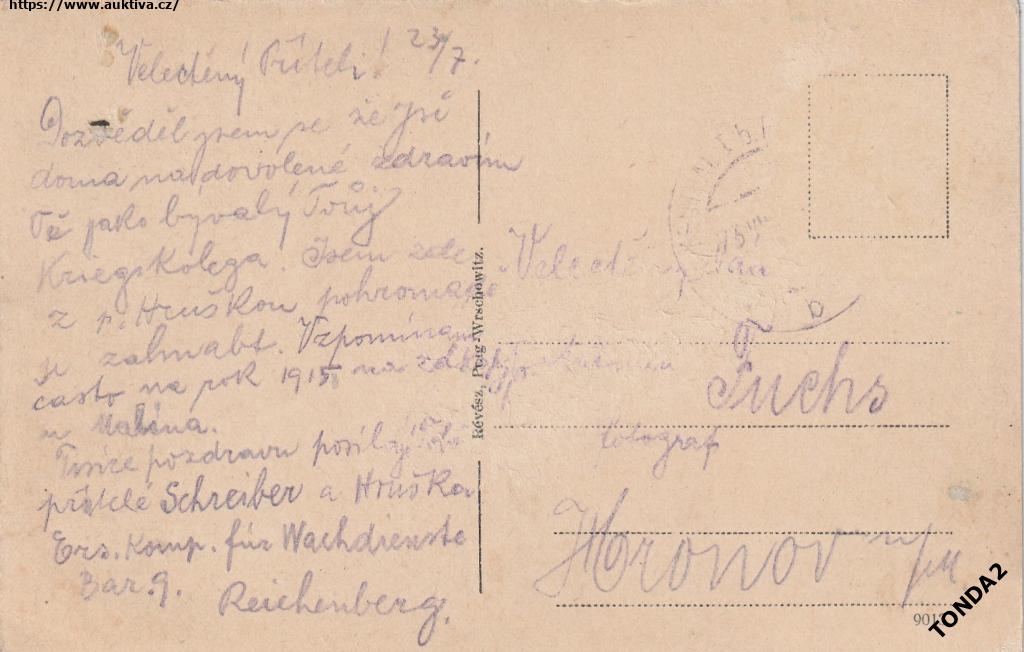 https://www.auktiva.cz/
23/7.
Velectěný Příteli!
Dozvěděl jsem se že jsi
doma na dovolené zdravím
Tě jako bývalý Tvůj
Kriegskolega. Jsem zde
z p. Hruškou pohromadě
zahrabt. Vzpomínám
často na rok 1915 na
u Malina.
Tisíce pozdravu posílají
přátelé Schreiber a Hruška
Ers. Komp. für Wachdienste
Bar. 9.
Reichenberg.
Révész, Putg-Wrschowitz.
Velectěný Pan
Fuchs
fotograf
Hronov
901
TONDA2